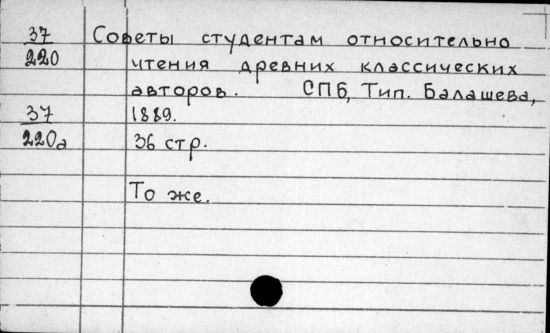 37 Советы студентам относительно
220 чтения древних классических
авторов. СПб, Тип. Балашева,
37 1889.
220а 36 стр.
То же.